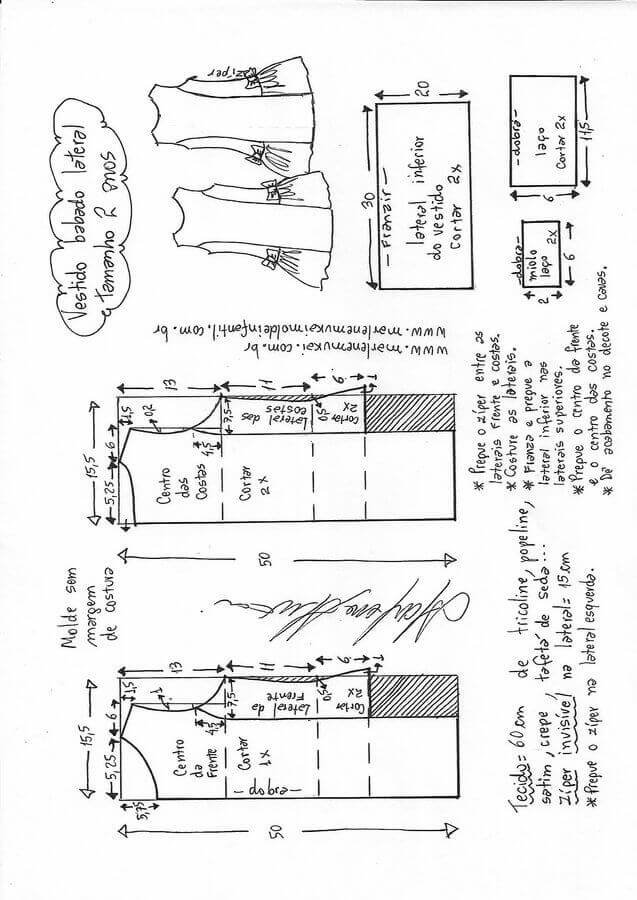 Molde sem
margem
de costura
Vestido babado lateral
tamanho 2 anos
zíper
15,5
5,25
6
1,5
5,75
1
13
50
4,5
7,5
11
0,5
6
1
Centro
da
Frente
Cortar
1x
-dobra-
Lateral da
Frente
Cortar
2x
15,5
5,25
6
1,5
0,2
13
50
4,5
7,5
11
0,5
6
1
Centro
das
Costas
Cortar
2x
Lateral das
costas
Cortar
2x
www.marlenemukai.com.br
www.marlenemukaimoldeinfantil.com.br
30
20
-Franzir-
lateral inferior
do vestido
Cortar 2x
-dobra-
miolo
laço
2x
2
6
-dobra-
laço
Cortar 2x
6
11,5
Tecido= 60cm de tricoline, popeline,
satim, crepe, tafetá de seda...
Zíper invisível na lateral= 15cm
* Prepue o zíper na lateral esquerda.
* Prepue o zíper entre as
laterais frente e costas.
* Costure as laterais.
* Franza e prepue a
lateral inferior nas
laterais superiores.
* Prepue o centro da frente
e o centro das costas.
* Dê acabamento no decote e cavas.